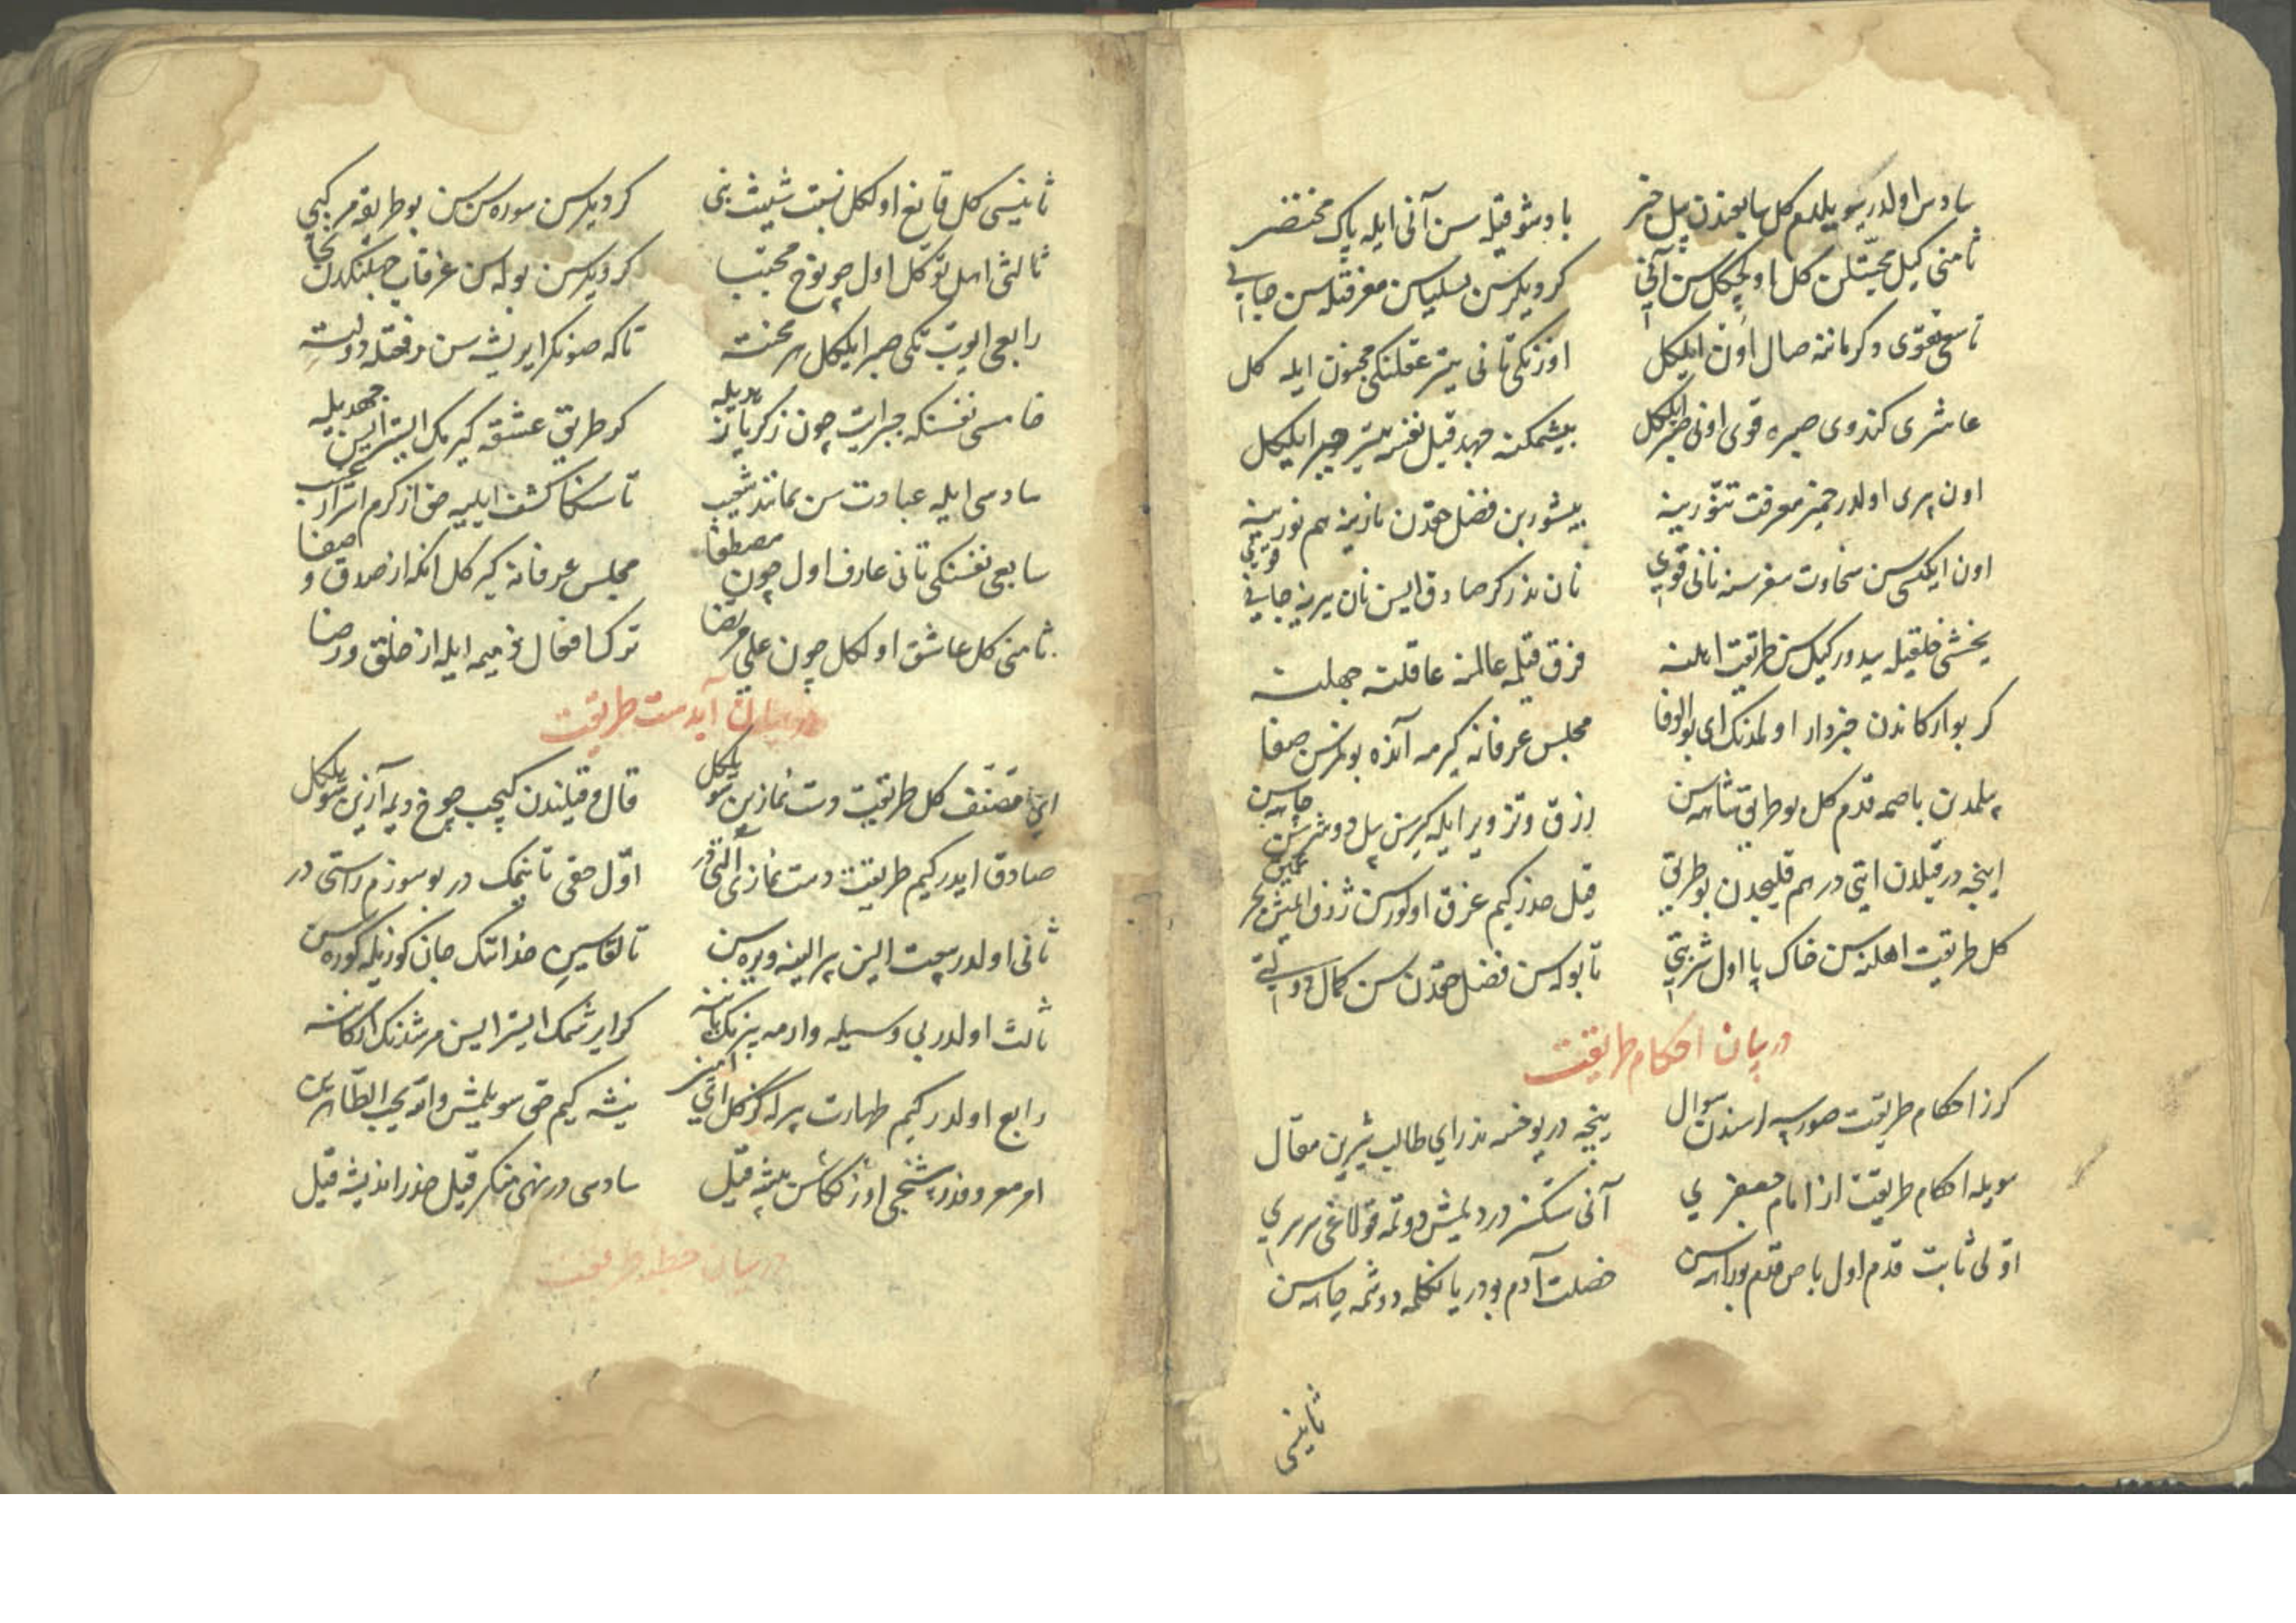 سادس اولدر سویلدم کل سابعندن بیل خبر باد شوقیله سن آنی ایله پاک مختصر
ثامنی کیل محبتلن کل اوکچکل سن آنی کر دیلرسن بسلیاسن معرفتله سن جانی
تاسع تقوی دکرماننه صال اون ایلکل اوزنکی تانی یتر عقلنکی مجنون ایله کل
عاشری کندوی صبره قوی اونی خمیر ایلکل بیشمکنه جهد قیل نفسه یتر جبر ایلکل
اون بری اولدر خمیر معرفت تنورینه بیشورین فضل حقدن نازینه هم نورینه
اون ایکسی سن سخاوت سفره‌سنه نانی قوی نان نذر کر صادق ایسن نان یرینه جانی قوی
یخشی خلقیله یدور کیل سن طریقت اهلنه فرق قیله عالمنه عاقلنه جهلنه
کر بو ارکاندن خبردار اولمدنک ای بوالوفا مجلس عرفانه کیرمه آنده بولمزسن صفا
بیلمدن باصمه قدم کل بو طریقتشاه سن رزق و تزویر ایله کیرسن بیل دوشرسن چاه سن
اینجه در قیلدن ایتی در هم قلیجدن بو طریق قیل حذر کیم غرق اولورسن ژرف ایمش بحر عمیق
کل طریقت اهلنه سن خاک پا اول شربتی تا بوله سن فضل حقدن سن کمال دولتی
در بیان احکام طریقت
کرز احکام طریقت صورسه ارسندن سوال ینجه در یوخسه ندر ای طالب شیرین مقال
سویله احکام طریقت از امام جعفری آنی سکز در دیمش دوتمه قولاغی سرسری
اولی ثابت قدم اول باص قدم بوراه سن خصلت آدم بودر یانکلمه دوشمه چاه سن
ثانیسی
ثانیسی کل قانع اولکل نسبت شیث نبی کر دیلرسن سوره سن سن بو طریقه مرکبی
ثالثی اهل توکل اول چو نوح محتب کر دیلرسن بوله سن غرقاب جنکندن نجات
رابعی ایوب تکی صبر ایلکل هر محنته تاکه صونکرا یریشه سن رفعتله دولته
خامسی نفسنکه جبر ایت چون زکریا نذریله کر طریق عشقه کیرمک ایستر ایسن جهدیله
سادسی ایله عبادت سن بمانند شعیب تا سنکا کشف ایلیه حق از کرم اسرار غیب
سابعی نفسنکی تانی عارف اول چون مصطفا مجلس عرفانه کیر کل انکه از صدق و صفا
ثامنی کل عاشق اولکل چون علی مرتضا ترک افعال ذمیمه ایله از خلق و رضا
در بیان آبدست طریقت
ای مصنف کل طریقت دست نمازین سویلکل قال و قیلندن کیچب چوخ دیمه آزین سویلکل
صادق ایدر کیم طریقت دست نمازی التی در اول حقی تانیمک در بو سوزم راستی در
ثانی اولدر بیعت الین پیر الینه ویره سن تا لقاسین خدانک جان کوزیله کوره سن
ثالث اولدر بی وسیله وارمه پیرنک یاننه کر ایرشمک ایستر ایسن مرشدنک ارکاننه
رابع اولدر کیم طهارت بیرله کزکل ای امیر نیشه کیم حق سویلمش والله یحب الطاهرین
امر معروفدر بشنجی اوز ککاسن بیشه قیل سادسی در نهی منکر قیل حذر اندیشه قیل
در بیان خطبه طریقت